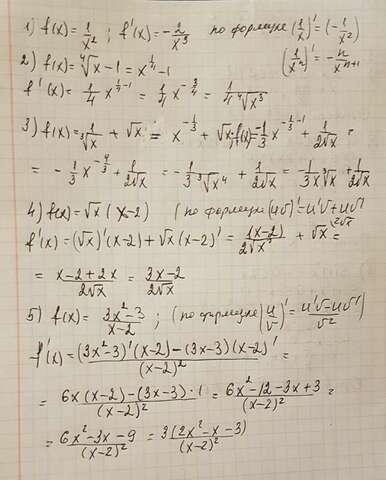 1) f(x) = 1/x²; f'(x) = -2/x³ по формуле (1/x)' = (-1/x²)
(1/xⁿ)' = -n/xⁿ⁺¹
2) f(x) = ⁴√x - 1 = x^(1/4) - 1
f'(x) = 1/4 x^(1/4 - 1) = 1/4 x^(-3/4) = 1/(4 ⁴√x³)
3) f(x) = 1/³√x + √x = x^(-1/3) + √x; f'(x) = -1/3 x^(-1/3 - 1) + 1/(2√x) =
= -1/3 x^(-4/3) + 1/(2√x) = -1/(3 ³√x⁴) + 1/(2√x) = -1/(3x ³√x) + 1/(2√x)
4) f(x) = √x (x-2) (по формуле (uv)' = u'v + uv'
f'(x) = (√x)'(x-2) + √x (x-2)' = 1(x-2)/(2√x) + √x^(2√x) =
= (x-2+2x)/(2√x) = (3x-2)/(2√x)
5) f(x) = (3x²-3)/(x-2); (по формуле (u/v)' = (u'v-uv')/v²
f'(x) = ((3x²-3)'(x-2) - (3x-3)(x-2)')/(x-2)² =
= (6x(x-2) - (3x-3)·1)/(x-2)² = (6x²-12-3x+3)/(x-2)² =
= (6x²-3x-9)/(x-2)² = 3(2x²-x-3)/(x-2)²